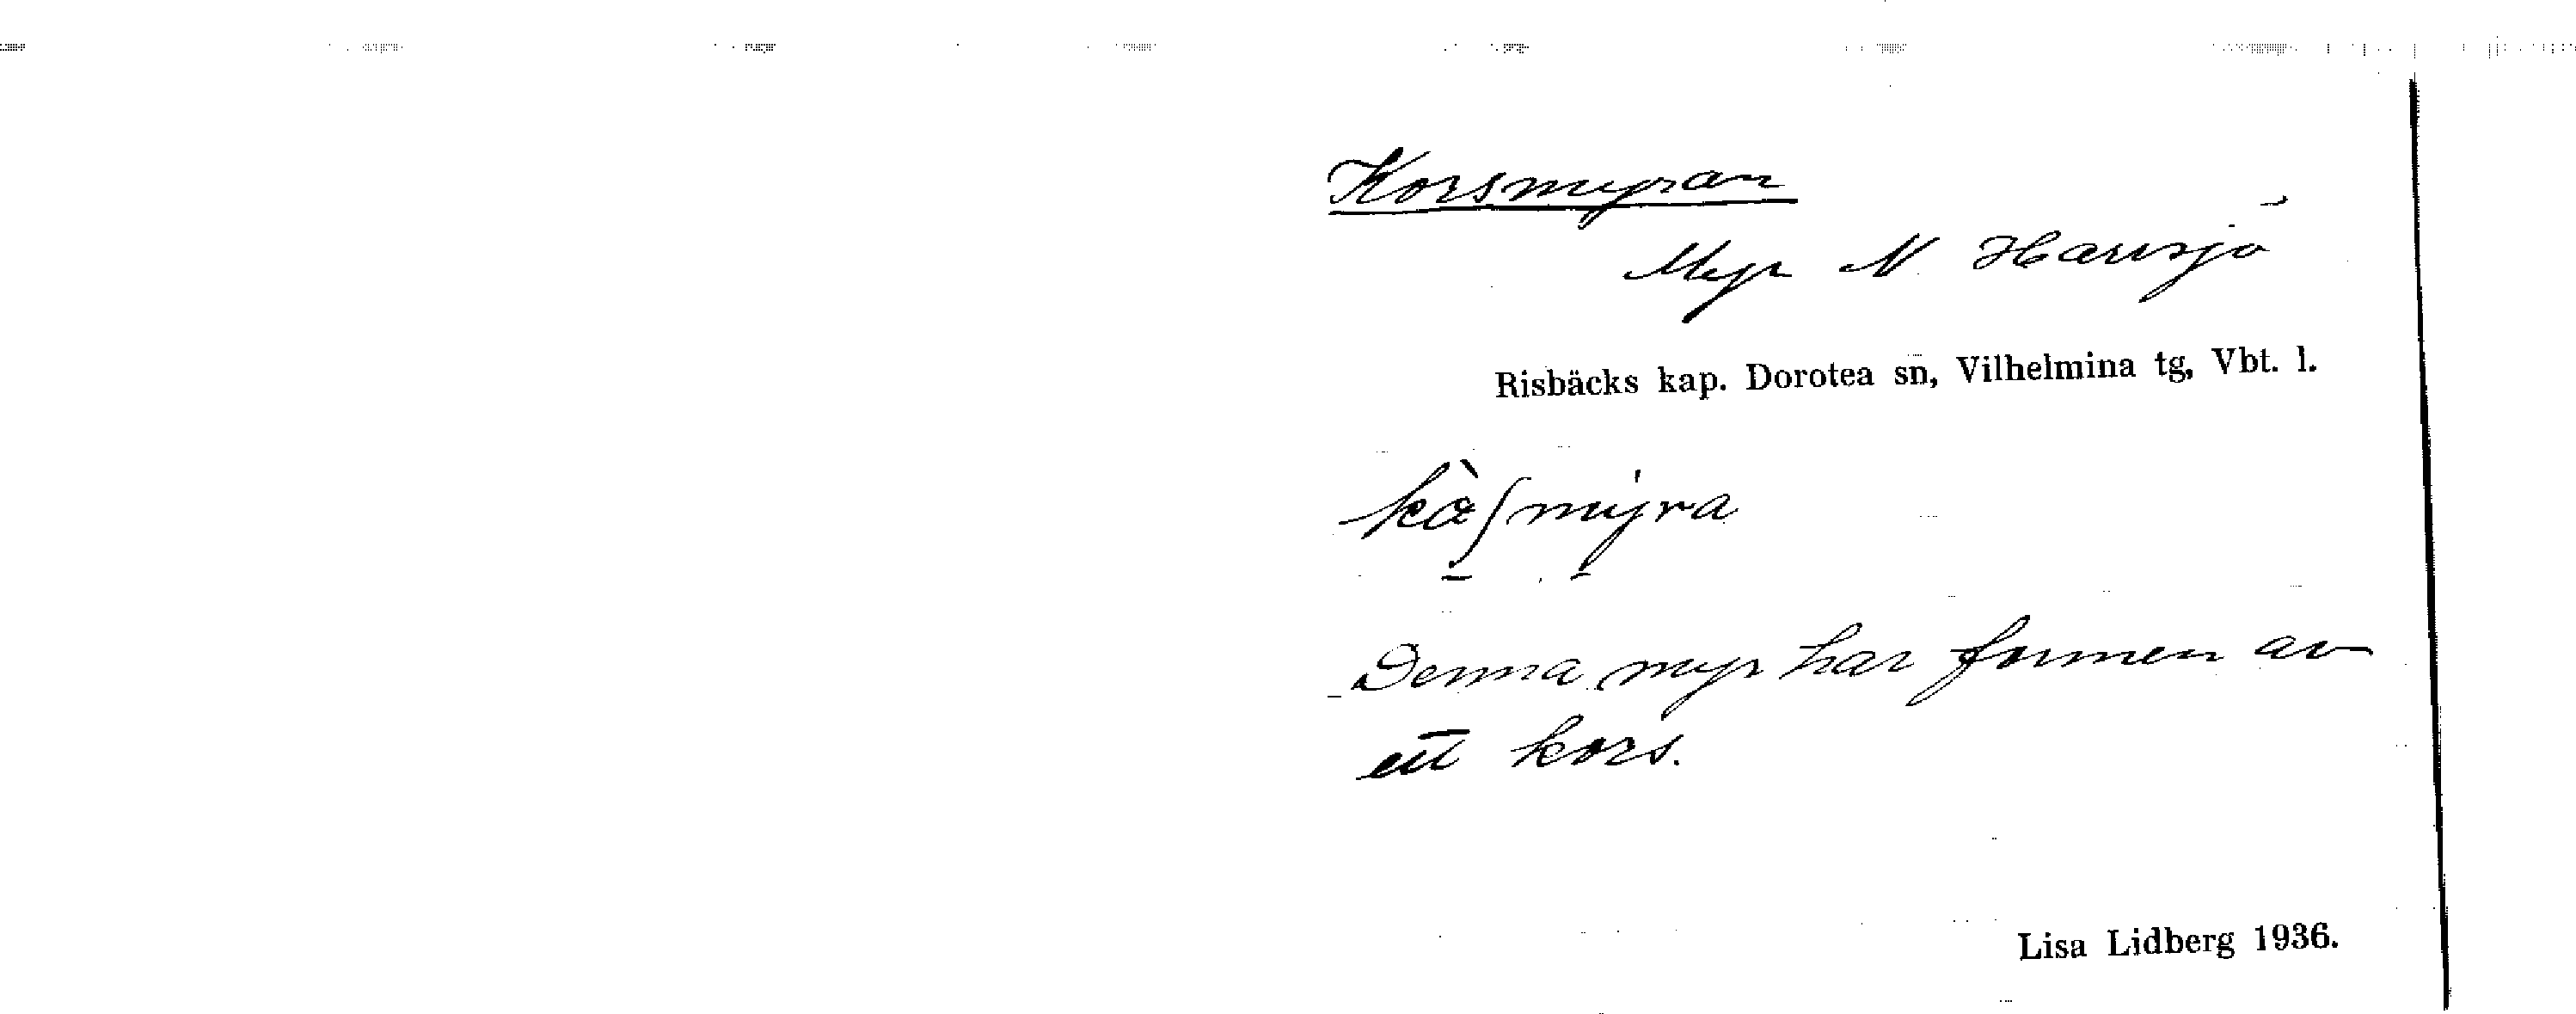 Korsmyran
Myr N Harvsjö
Risbäcks kap. Dorotea sn̄, Vilhelmina tg, Vbt. l.
kɑ̀ʃmy̍ra
Denna myr har formen av
ett kors.
Lisa Lidberg 1936.